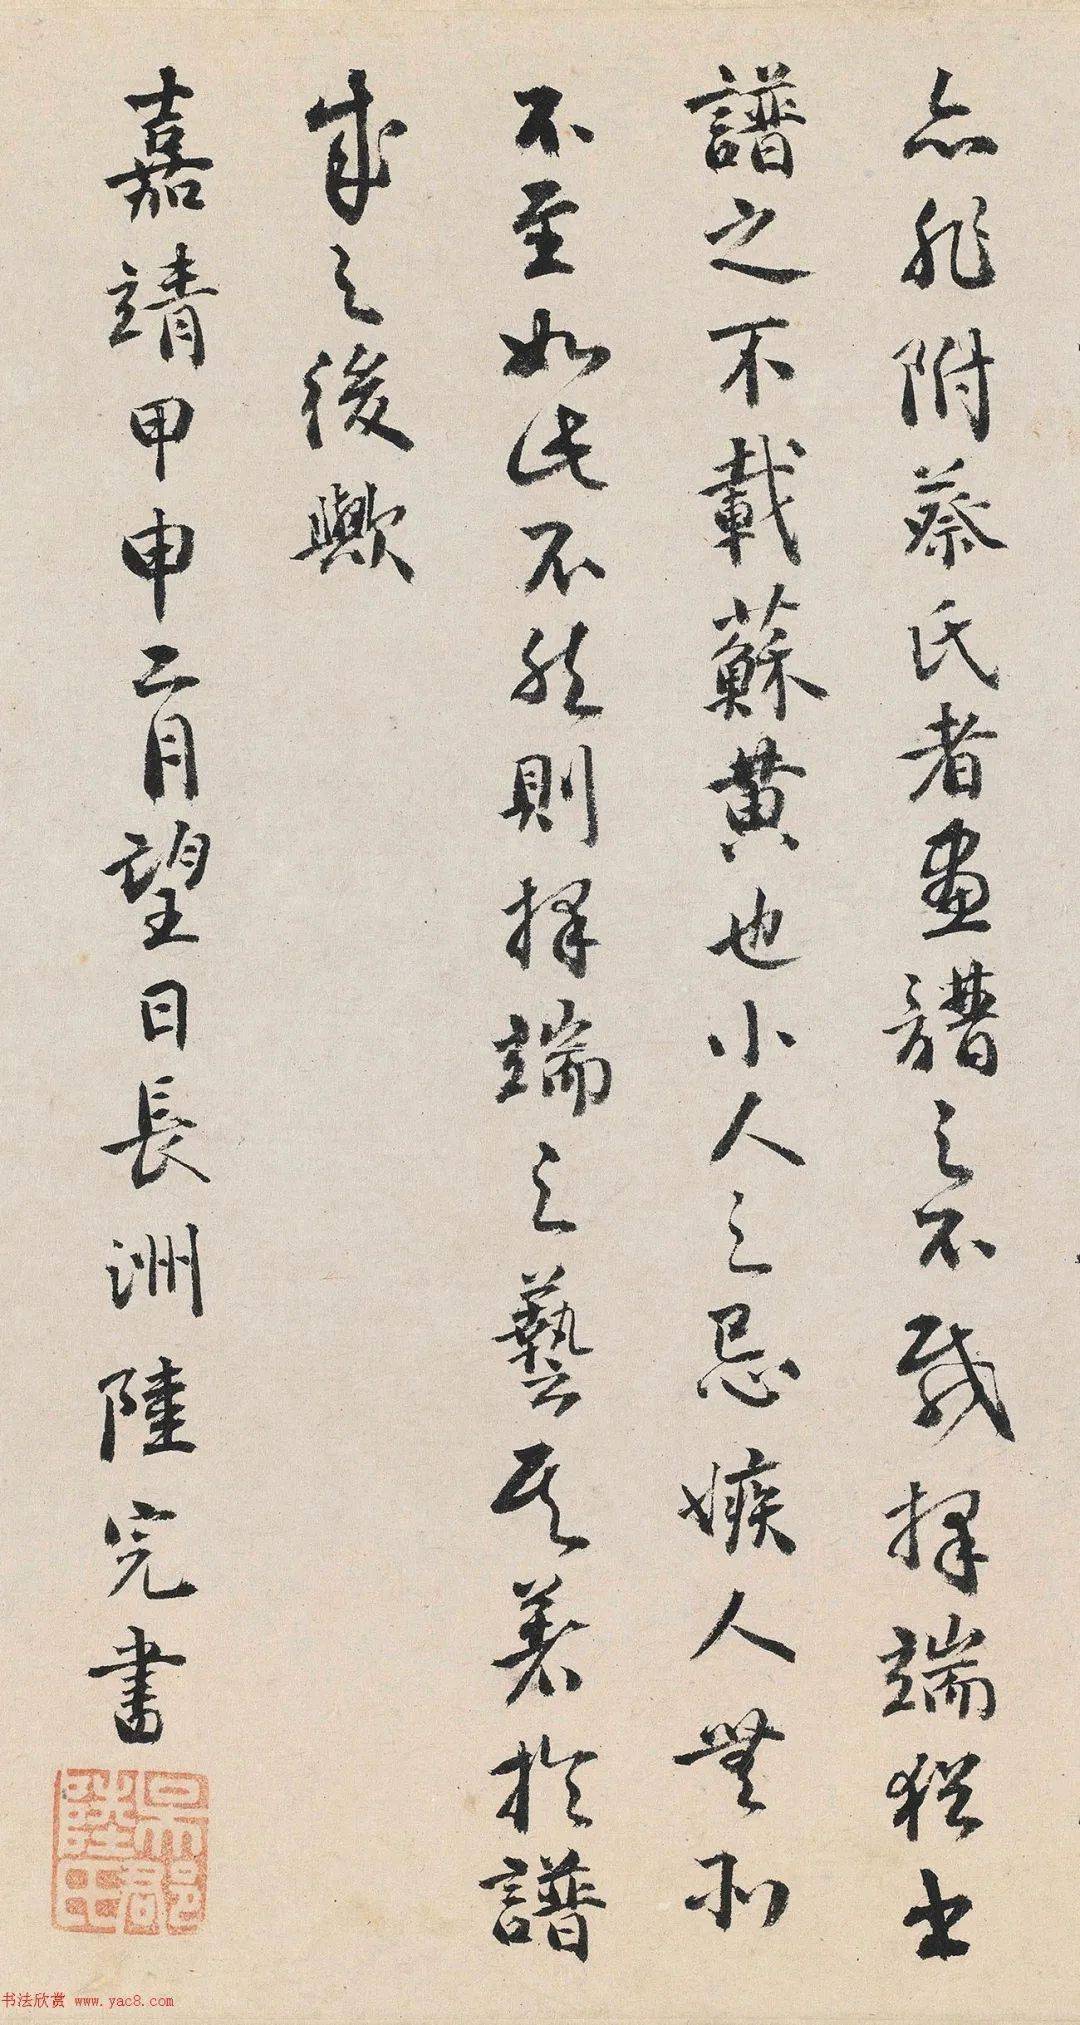 亦非附蔡氏者畫譜之不載擇端猶書
譜之不載蘇黃也小人之忌嫉人無所
不至如此不然則擇端之藝其著於譜
成之後歟
嘉靖甲申二月望日長洲陸完書
吳郡陸氏
书法欣赏 www.yac8.com